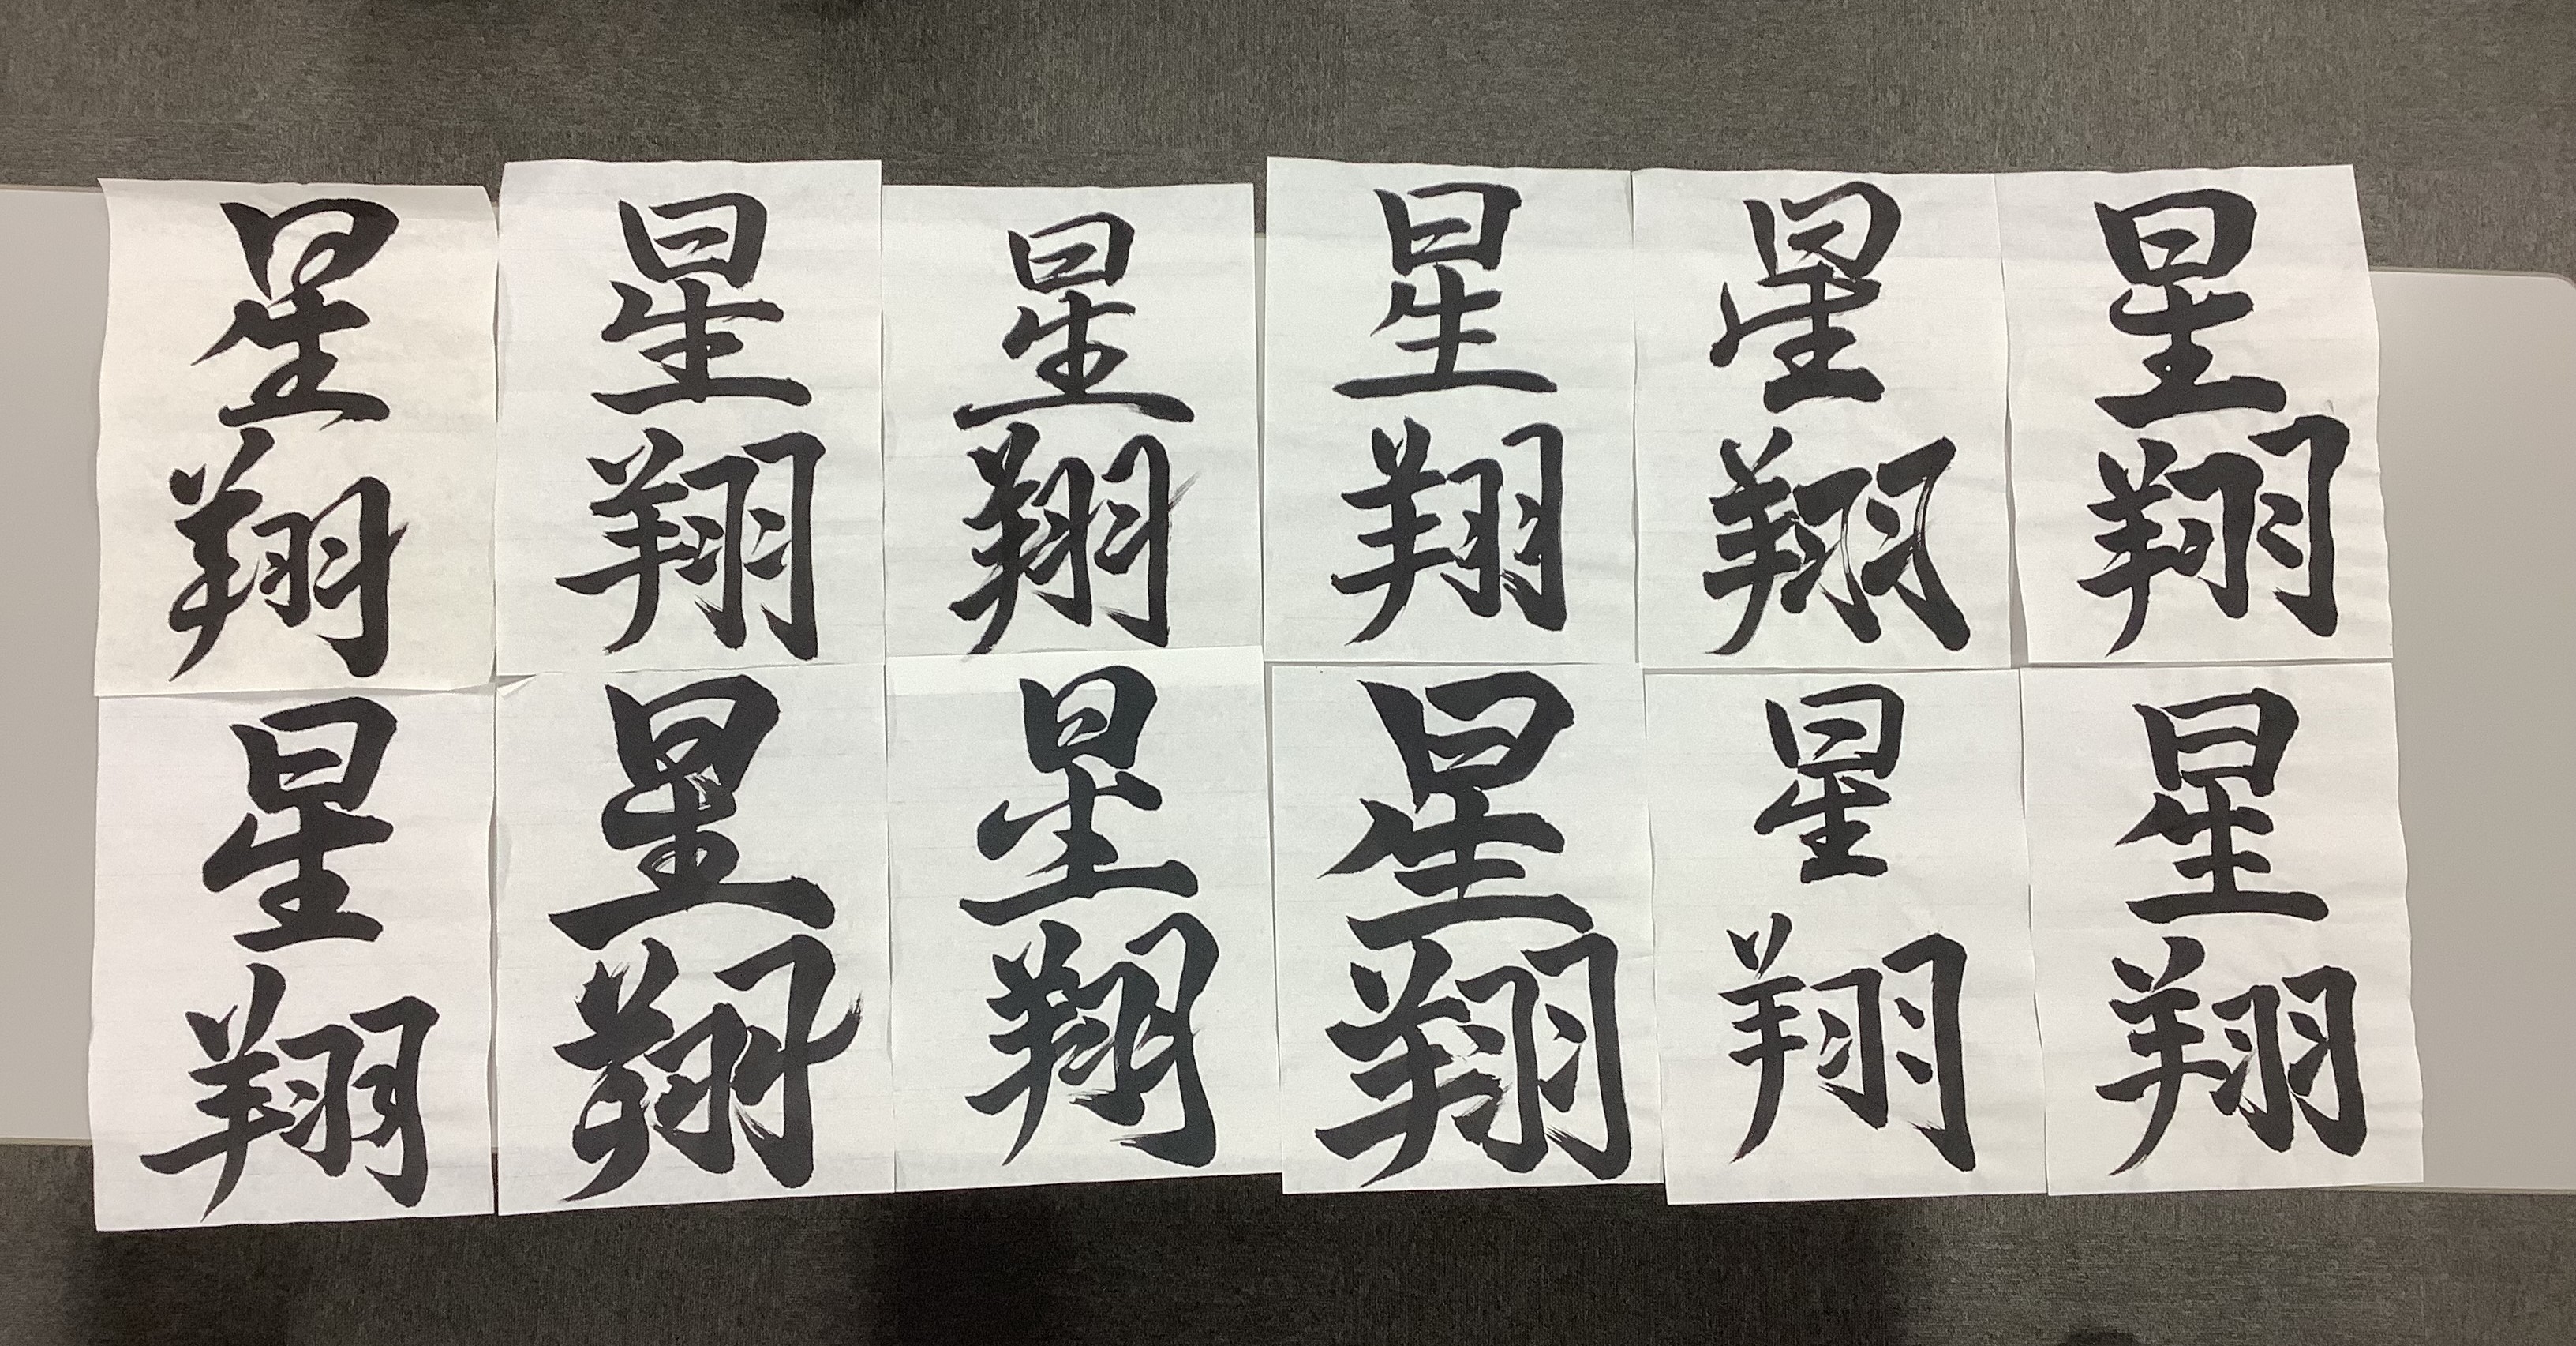 星翔
星翔
星翔
星翔
星翔
星翔
星翔
星翔
星翔
星翔
星翔
星翔